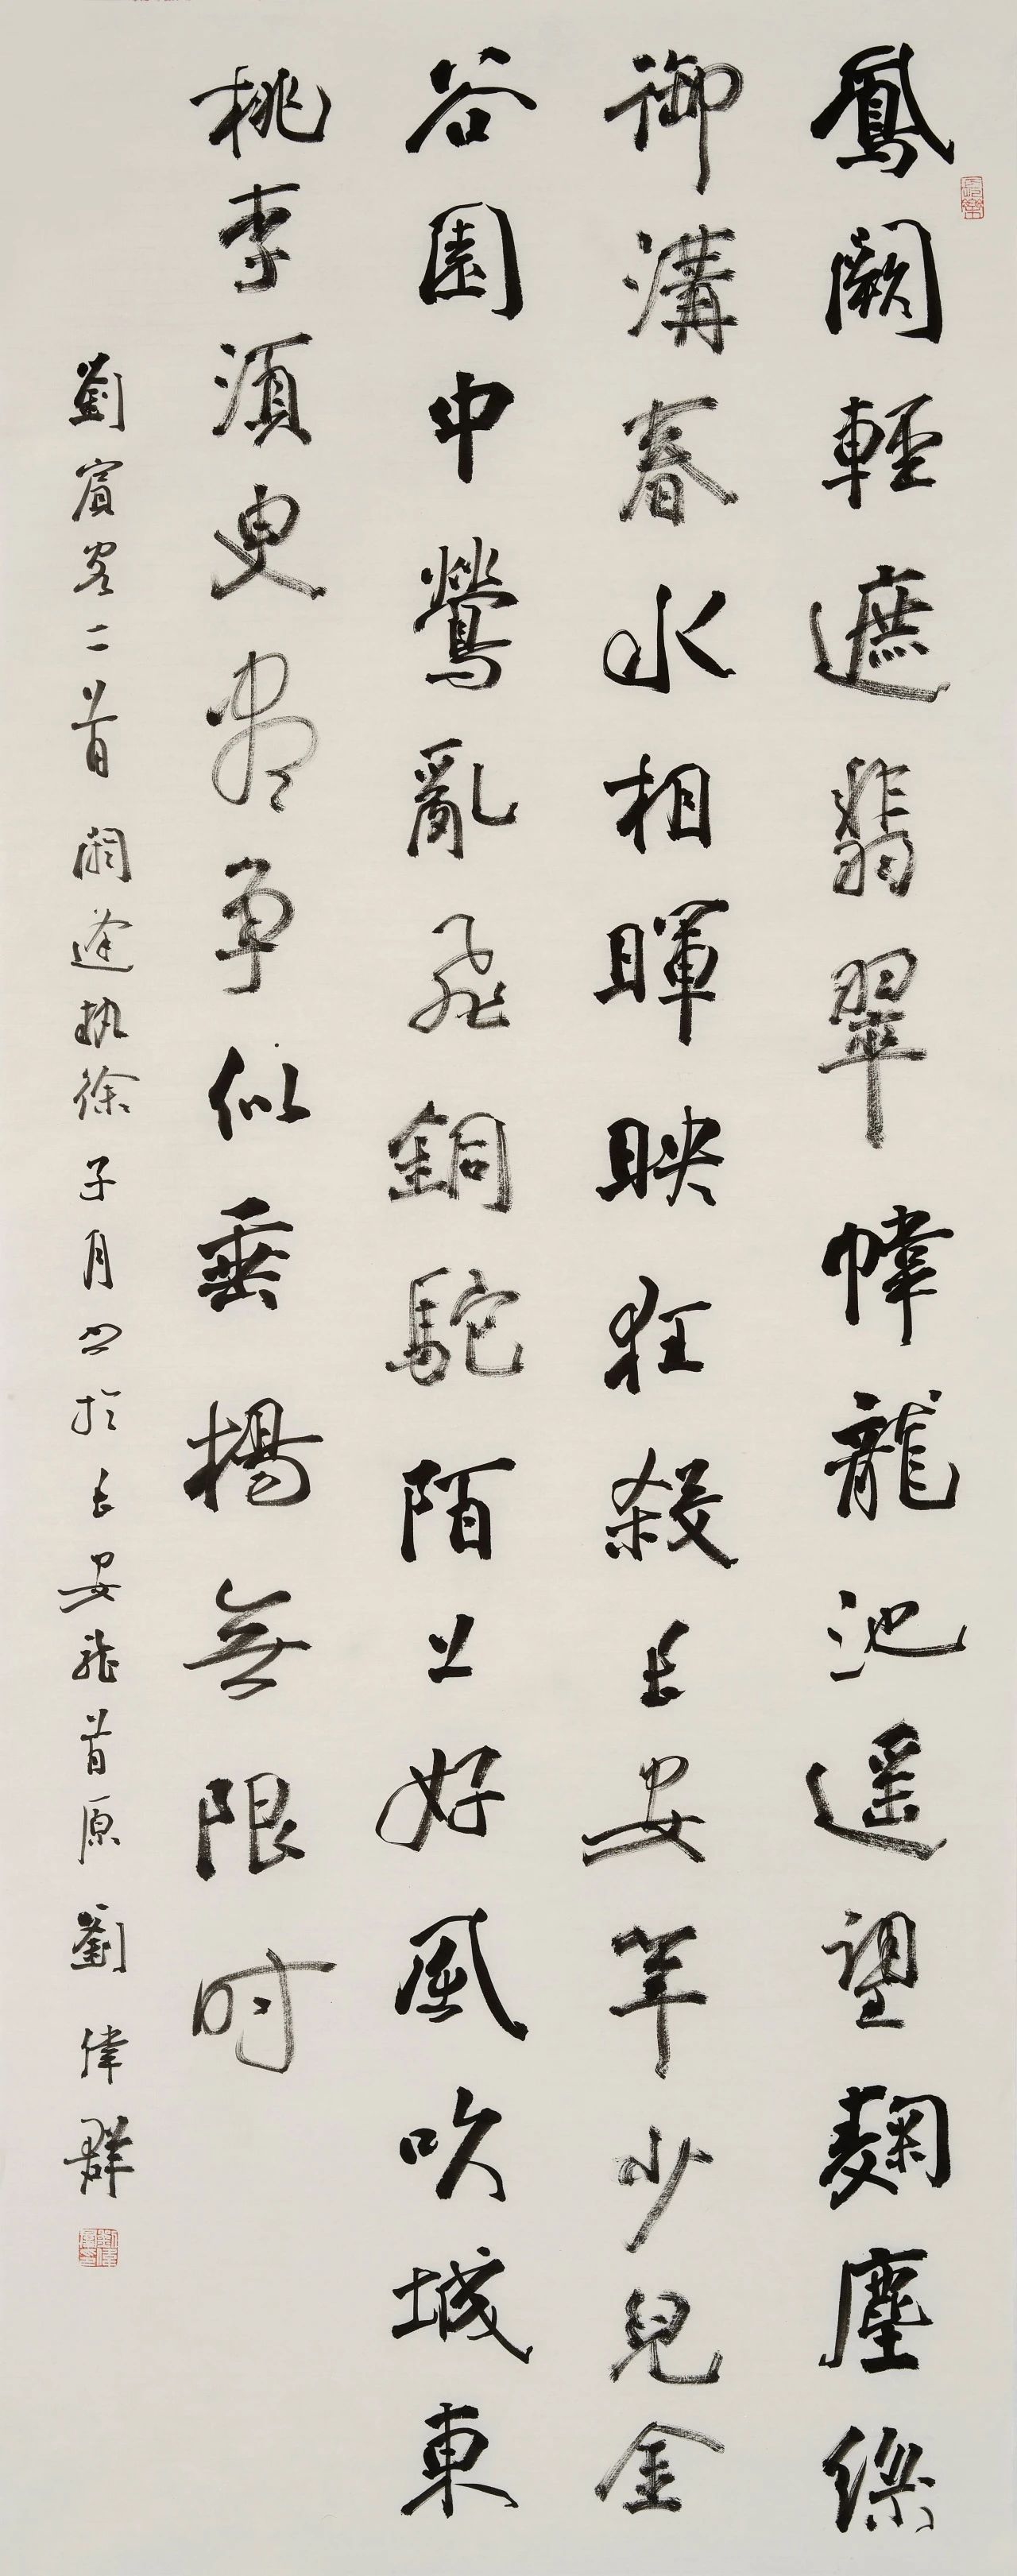 鳳闕輕遮翡翠幃龍池遥望麴塵絲
御溝春水相暉映狂殺長安年少兒金
谷園中鶯亂飛銅駝陌上好風吹城東
桃李須臾盡争似垂楊無限时
劉賓客二首閼逢執徐子月書於長安龍首原劉偉群